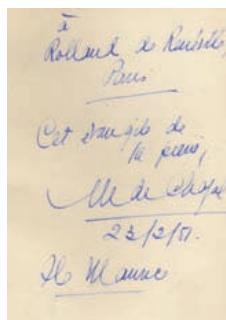 à
Rolland de Renéville,
Paris
Cet évangile de
la pierre,
M de Chazal
23/2/51.
Ile Maurice